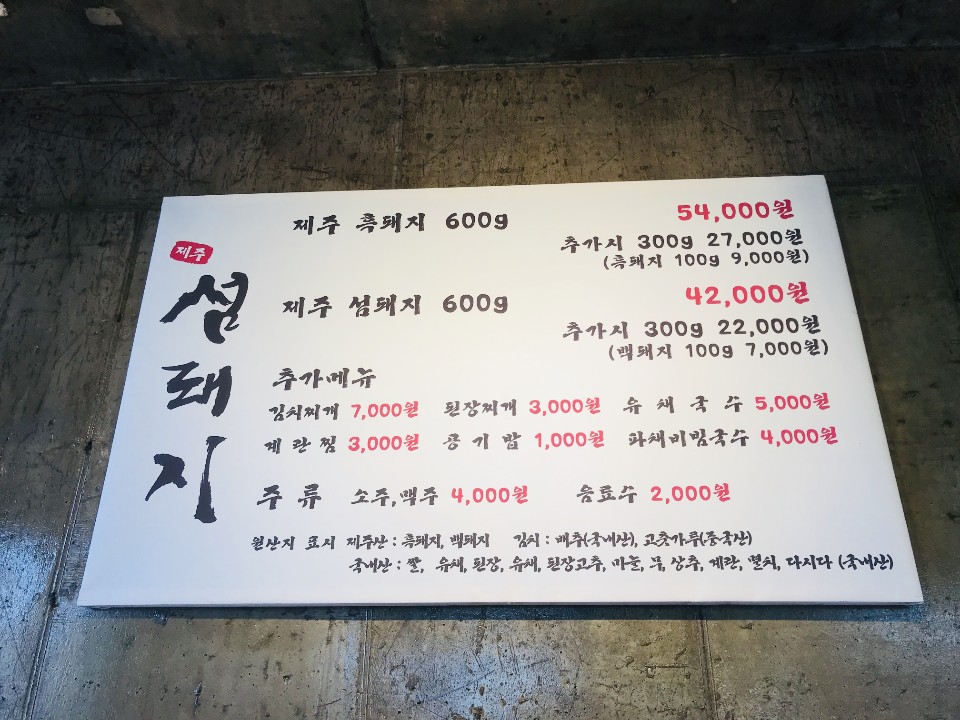 제주
섬돼지
제주 흑돼지 600g 54,000원
추가시 300g 27,000원
(흑돼지 100g 9,000원)
제주 섬돼지 600g 42,000원
추가시 300g 22,000원
(백돼지 100g 7,000원)
추가메뉴
김치찌개 7,000원 된장찌개 3,000원 유 채 국 수 5,000원
계 란 찜 3,000원 공 기 밥 1,000원 파채비빔국수 4,000원
주 류 소주,맥주 4,000원 음료수 2,000원
원산지 표시 제주산 : 흑돼지, 백돼지 김치 : 배추(국내산), 고춧가루(중국산)
국내산 : 쌀, 유채, 된장, 유채, 된장고추, 마늘, 무, 상추, 계란, 멸치, 다시다 (국내산)